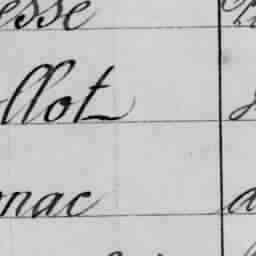 esse
llot
nac